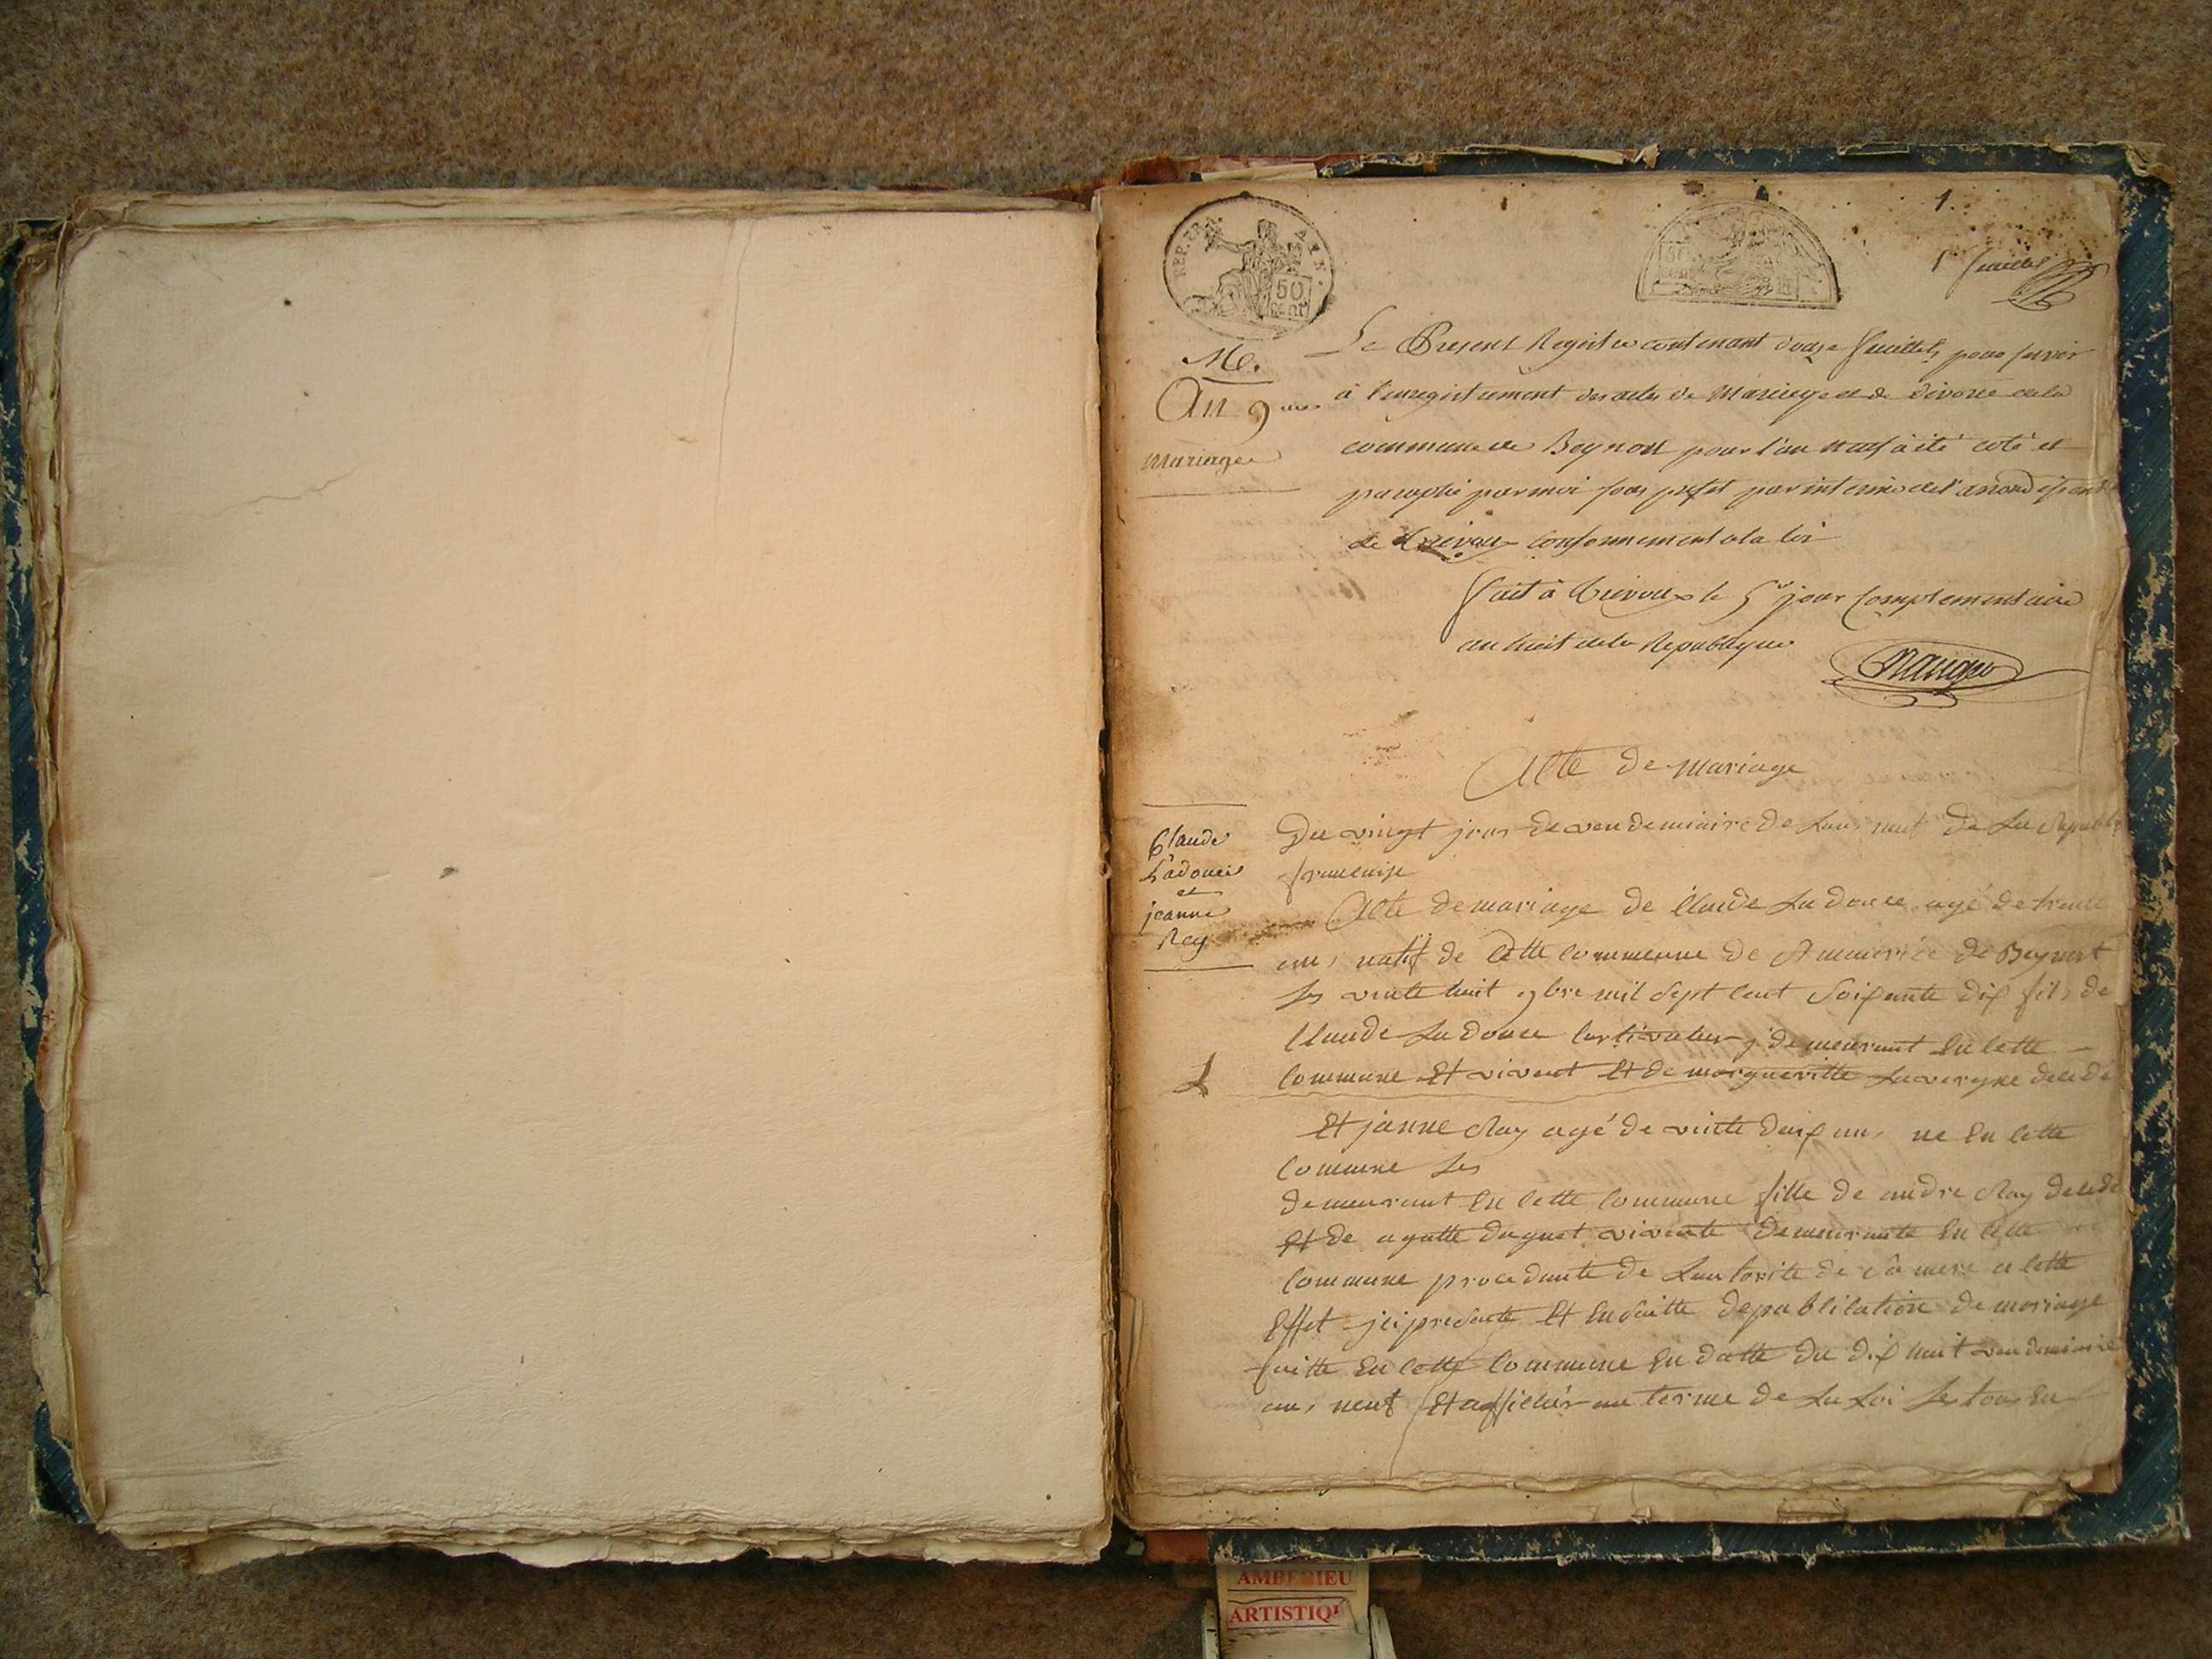 1.
1er feuillet
REP. FRA
ANE.
50
cent
50
M.
An 9me
Mariages
Le Present Registre contenant douze feuillets pour servir
à l'enregistrement des actes de Mariage et de divorce de la
commune de Beynost pour l'an neuf à été coté et
paraphé par moi sous prefet par interim de l'arrondissent
de Trevoux conformement a la loi
fait à Trevoux le 5e jour Complementaire
an huit de la Republique
Acte de mariage
Claude
Ladouce
et
jeanne
Rey
Du vingt jour de vendemiaire de Lans neuf de La Republ
francaise
Acte de mariage de Claude La douce agé de trente
ans, natif de Cette Commune de Beynost
Les vente huit 9bre mil Sept Cent Soixante dix fils de
Claude La douce Cultivateur demeurant En Cette
Commune Et vivent Et de margueritte Lavergne décédé
Et janne Ray agé de vinte deux ans, ne En Cette
Commune Les
demeurant En Cette Commune fille de andre Ray décédé
Et de agatte duquet vivente demeurante En Cette
Commune procedante de Lautorite de Sa mere a Cette
Effet ici presente Et Ensuitte de publication de mariage
faitte En Cette Commune En datte du dix huit vendemiaire
ans, neuf Et affichés au terme de La Loi Les tous En
AMBERIEU
ARTISTIQ